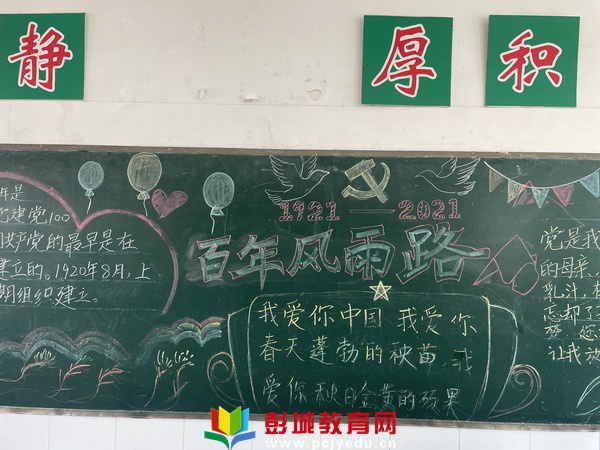 静
厚
积
年是
党建党100
共产党的最早是在
建立的。1920年8月,上
期组织建立。
1921—2021
百年风雨路
我爱你中国 我爱你
春天蓬勃的秧苗,我
爱你秋日金黄的硕果
党是我
的母亲,
乳汁,
忘却了
您
让我
彭城教育网
www.pcjyedu.cn